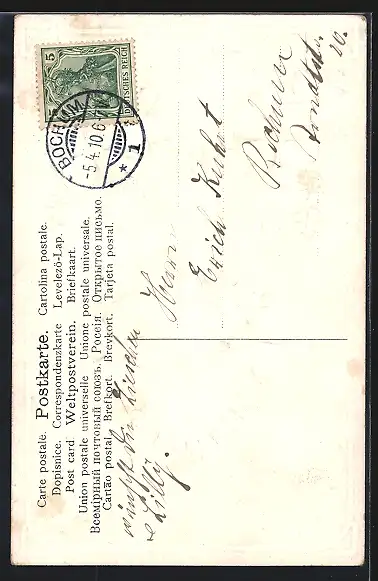 Carte postale. Postkarte. Cartolina postale.
Dopisnice. Correspondenzkarte Levelező-Lap.
Post card Weltpostverein. Briefkaart.
Union postale universelle Unione postale universale.
Всемірный почтовый союзъ. Россія. Открытое письмо.
Cartão postal. Brefkort. Brevkort. Tarjeta postal.
5
DEUTSCHES REICH
BOCHUM
-5.4.10.6-7
* 1
Herrn
Erich
Bochum
20.
wünscht Dir
& Lilly.